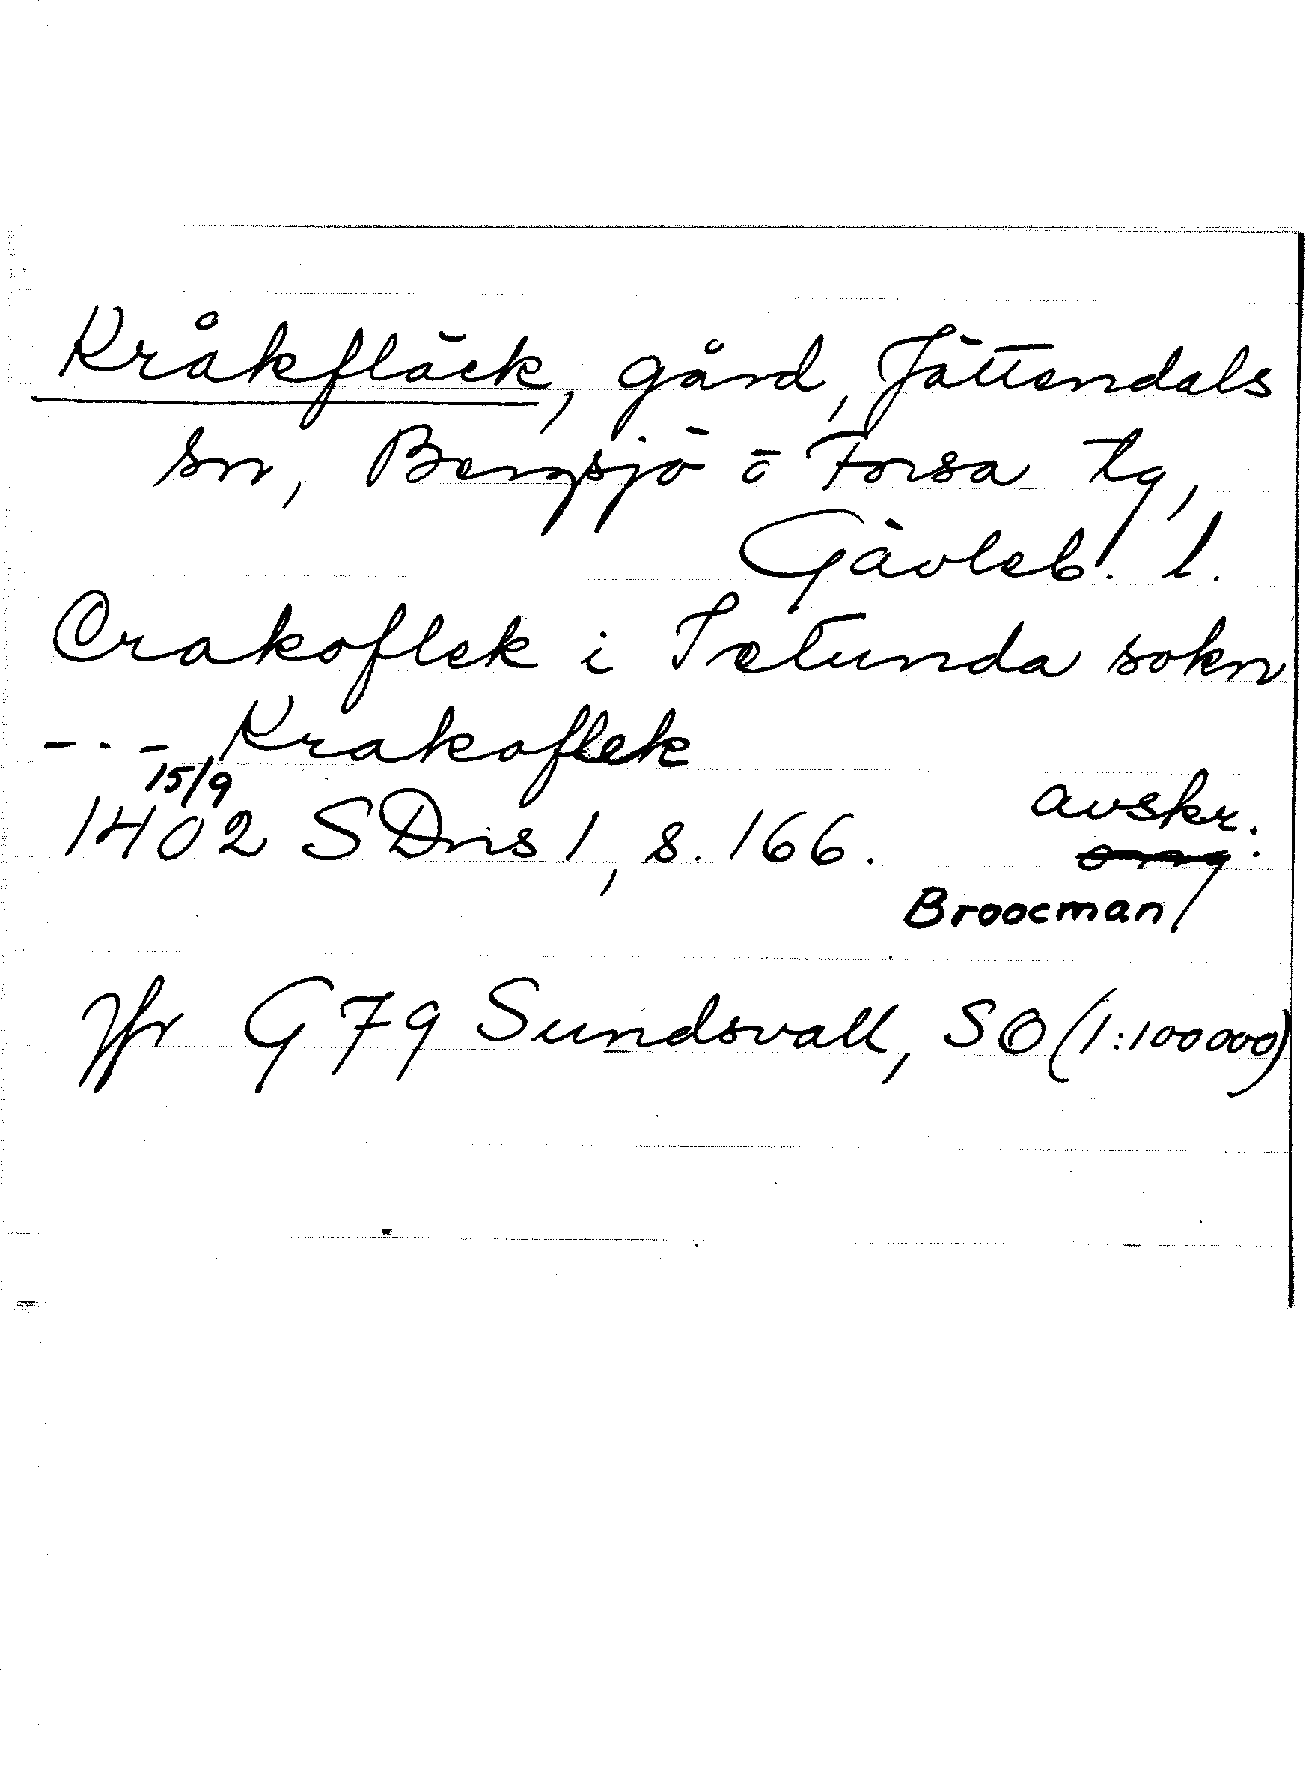 Kråkfläck, gård, Jättendals
sn, Bergsjö o Forsa tg,
Gävleb. l.
Crakoflek i Ietunda sokn
-.- Krakoflek
15/9
1402 SDns 1, s. 166.
avskr.
Broocman
Jfr G 79 Sundsvall, SO (1:100000)